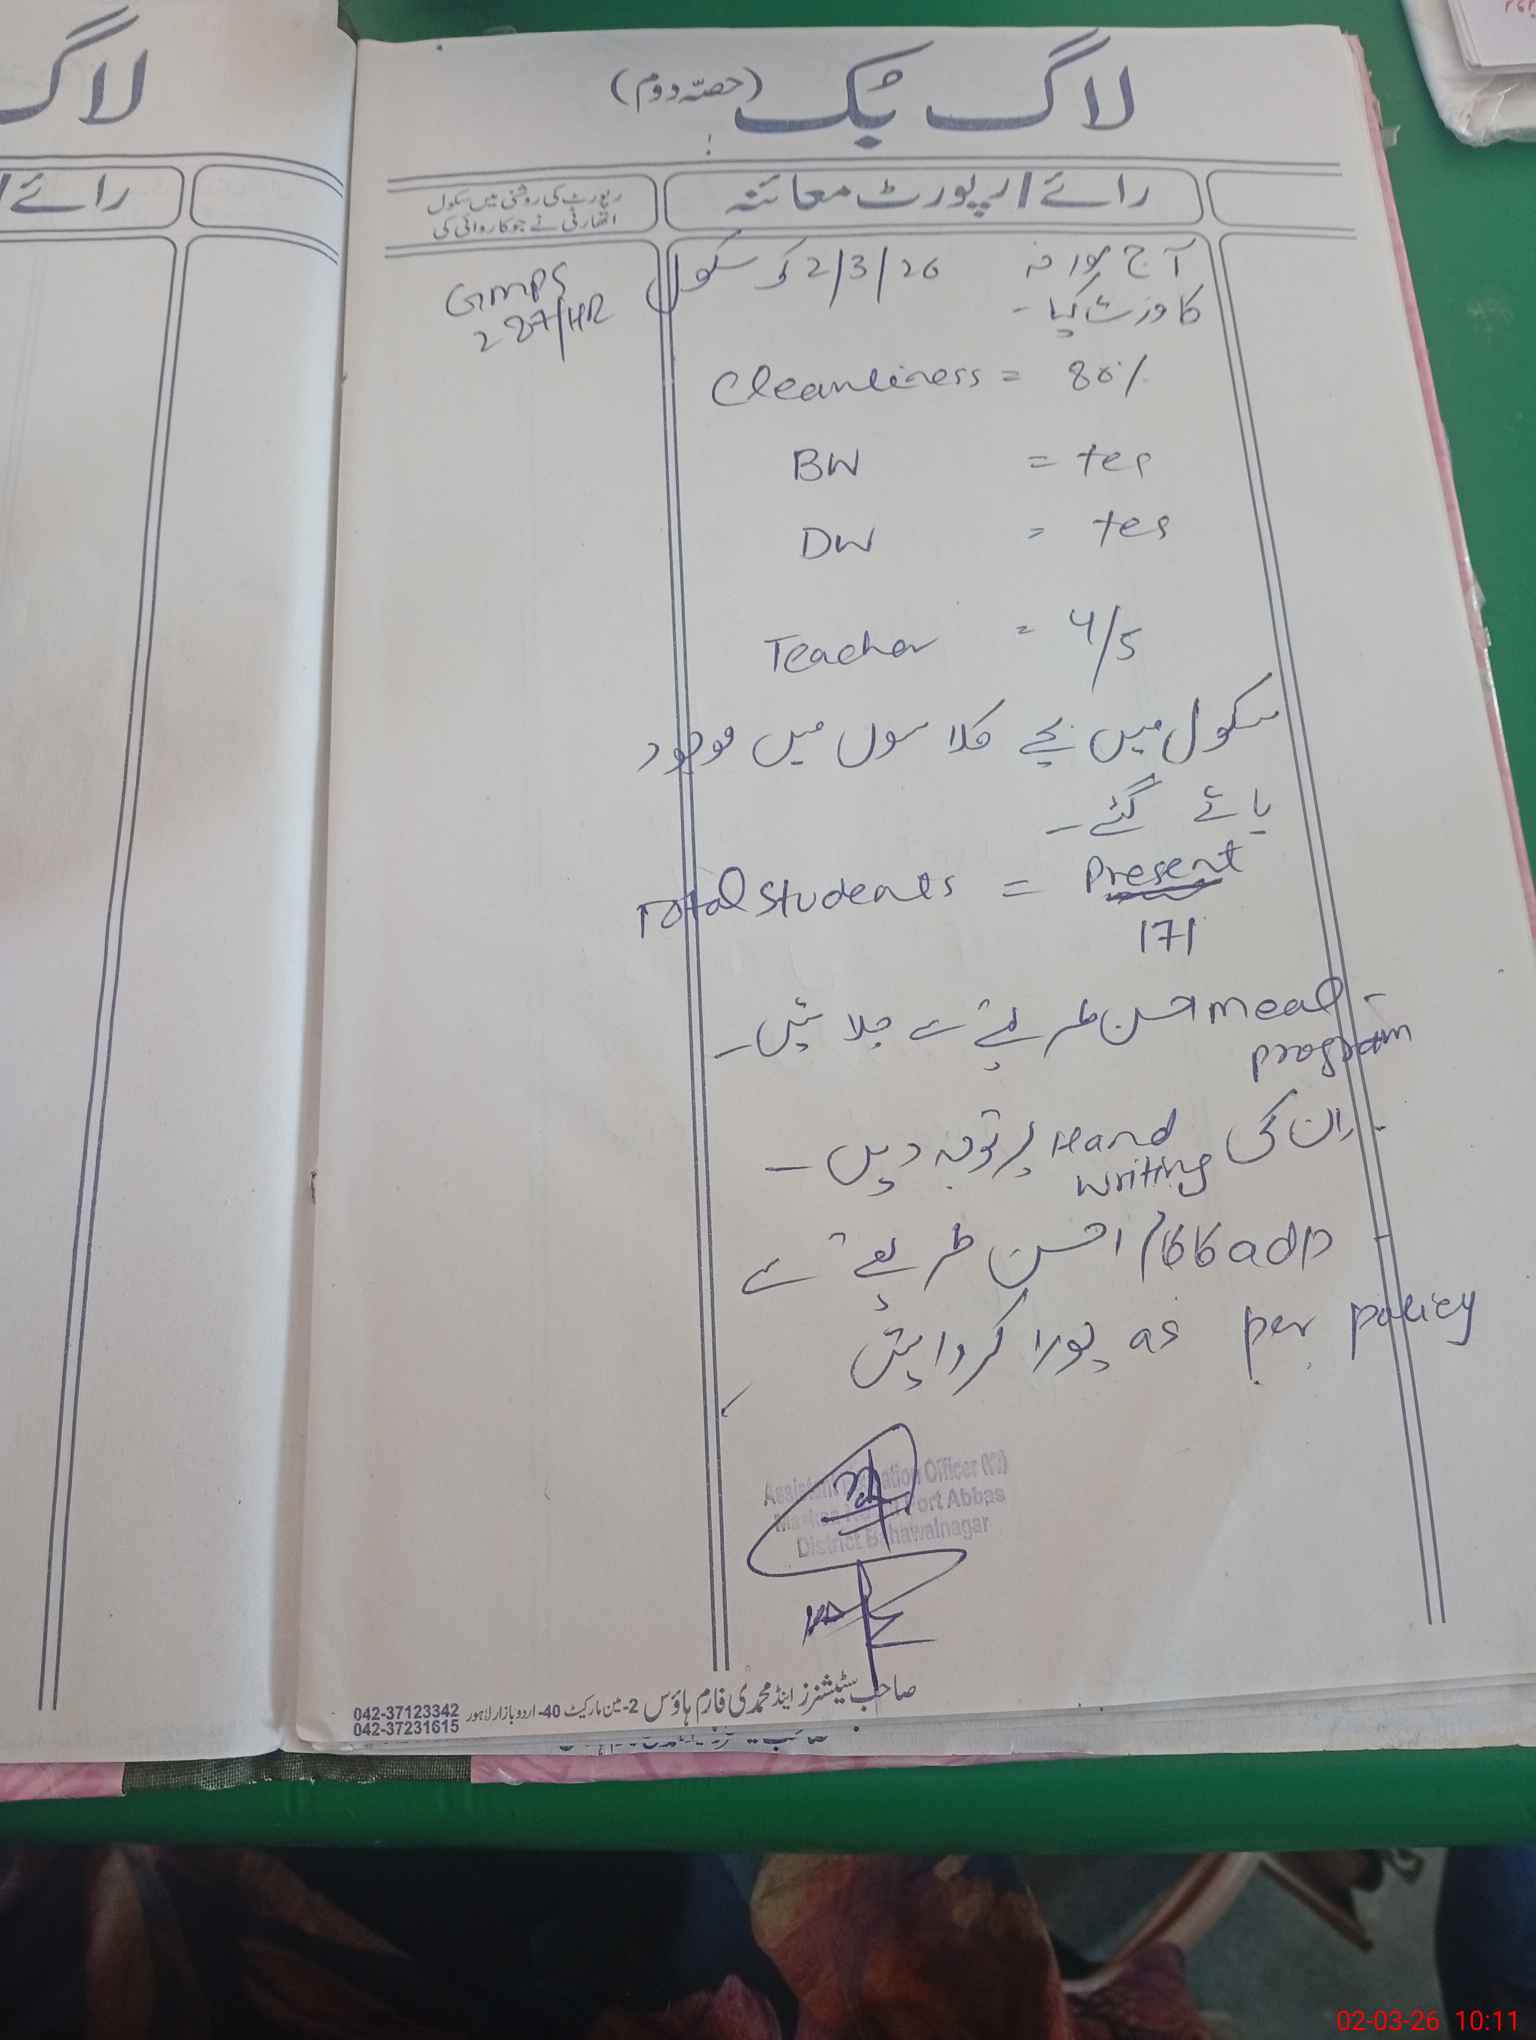 لاگ
لاگ بُک (حصّہ دوم)
رائے/
رائے/رپورٹ معائنہ
رپورٹ کی روشنی میں سکول
اتھارٹی نے جو کاروائی کی
GMPS
287/HR
آج مورخہ 2/3/26 کو سکول
کا وزٹ کیا۔
Cleanliness = 80%
BW = Yes
DW = Yes
Teacher = 4/5
سکول میں بچے کلاسوں میں موجود
پائے گئے۔
Total Students = Present
171
- meal program احسن طریقے سے چلائیں۔
- ان کی Hand writing پر توجہ دیں۔
- adp کا کام احسن طریقے سے
پورا کروایئں as per policy
Officer
Fort Abbas
District Bahawalnagar
صاحب سٹیشنرز اینڈ محمدی فارم ہاؤس 2-مین مارکیٹ 40-اردو بازار لاہور
042-37123342
042-37231615
02-03-26 10:11